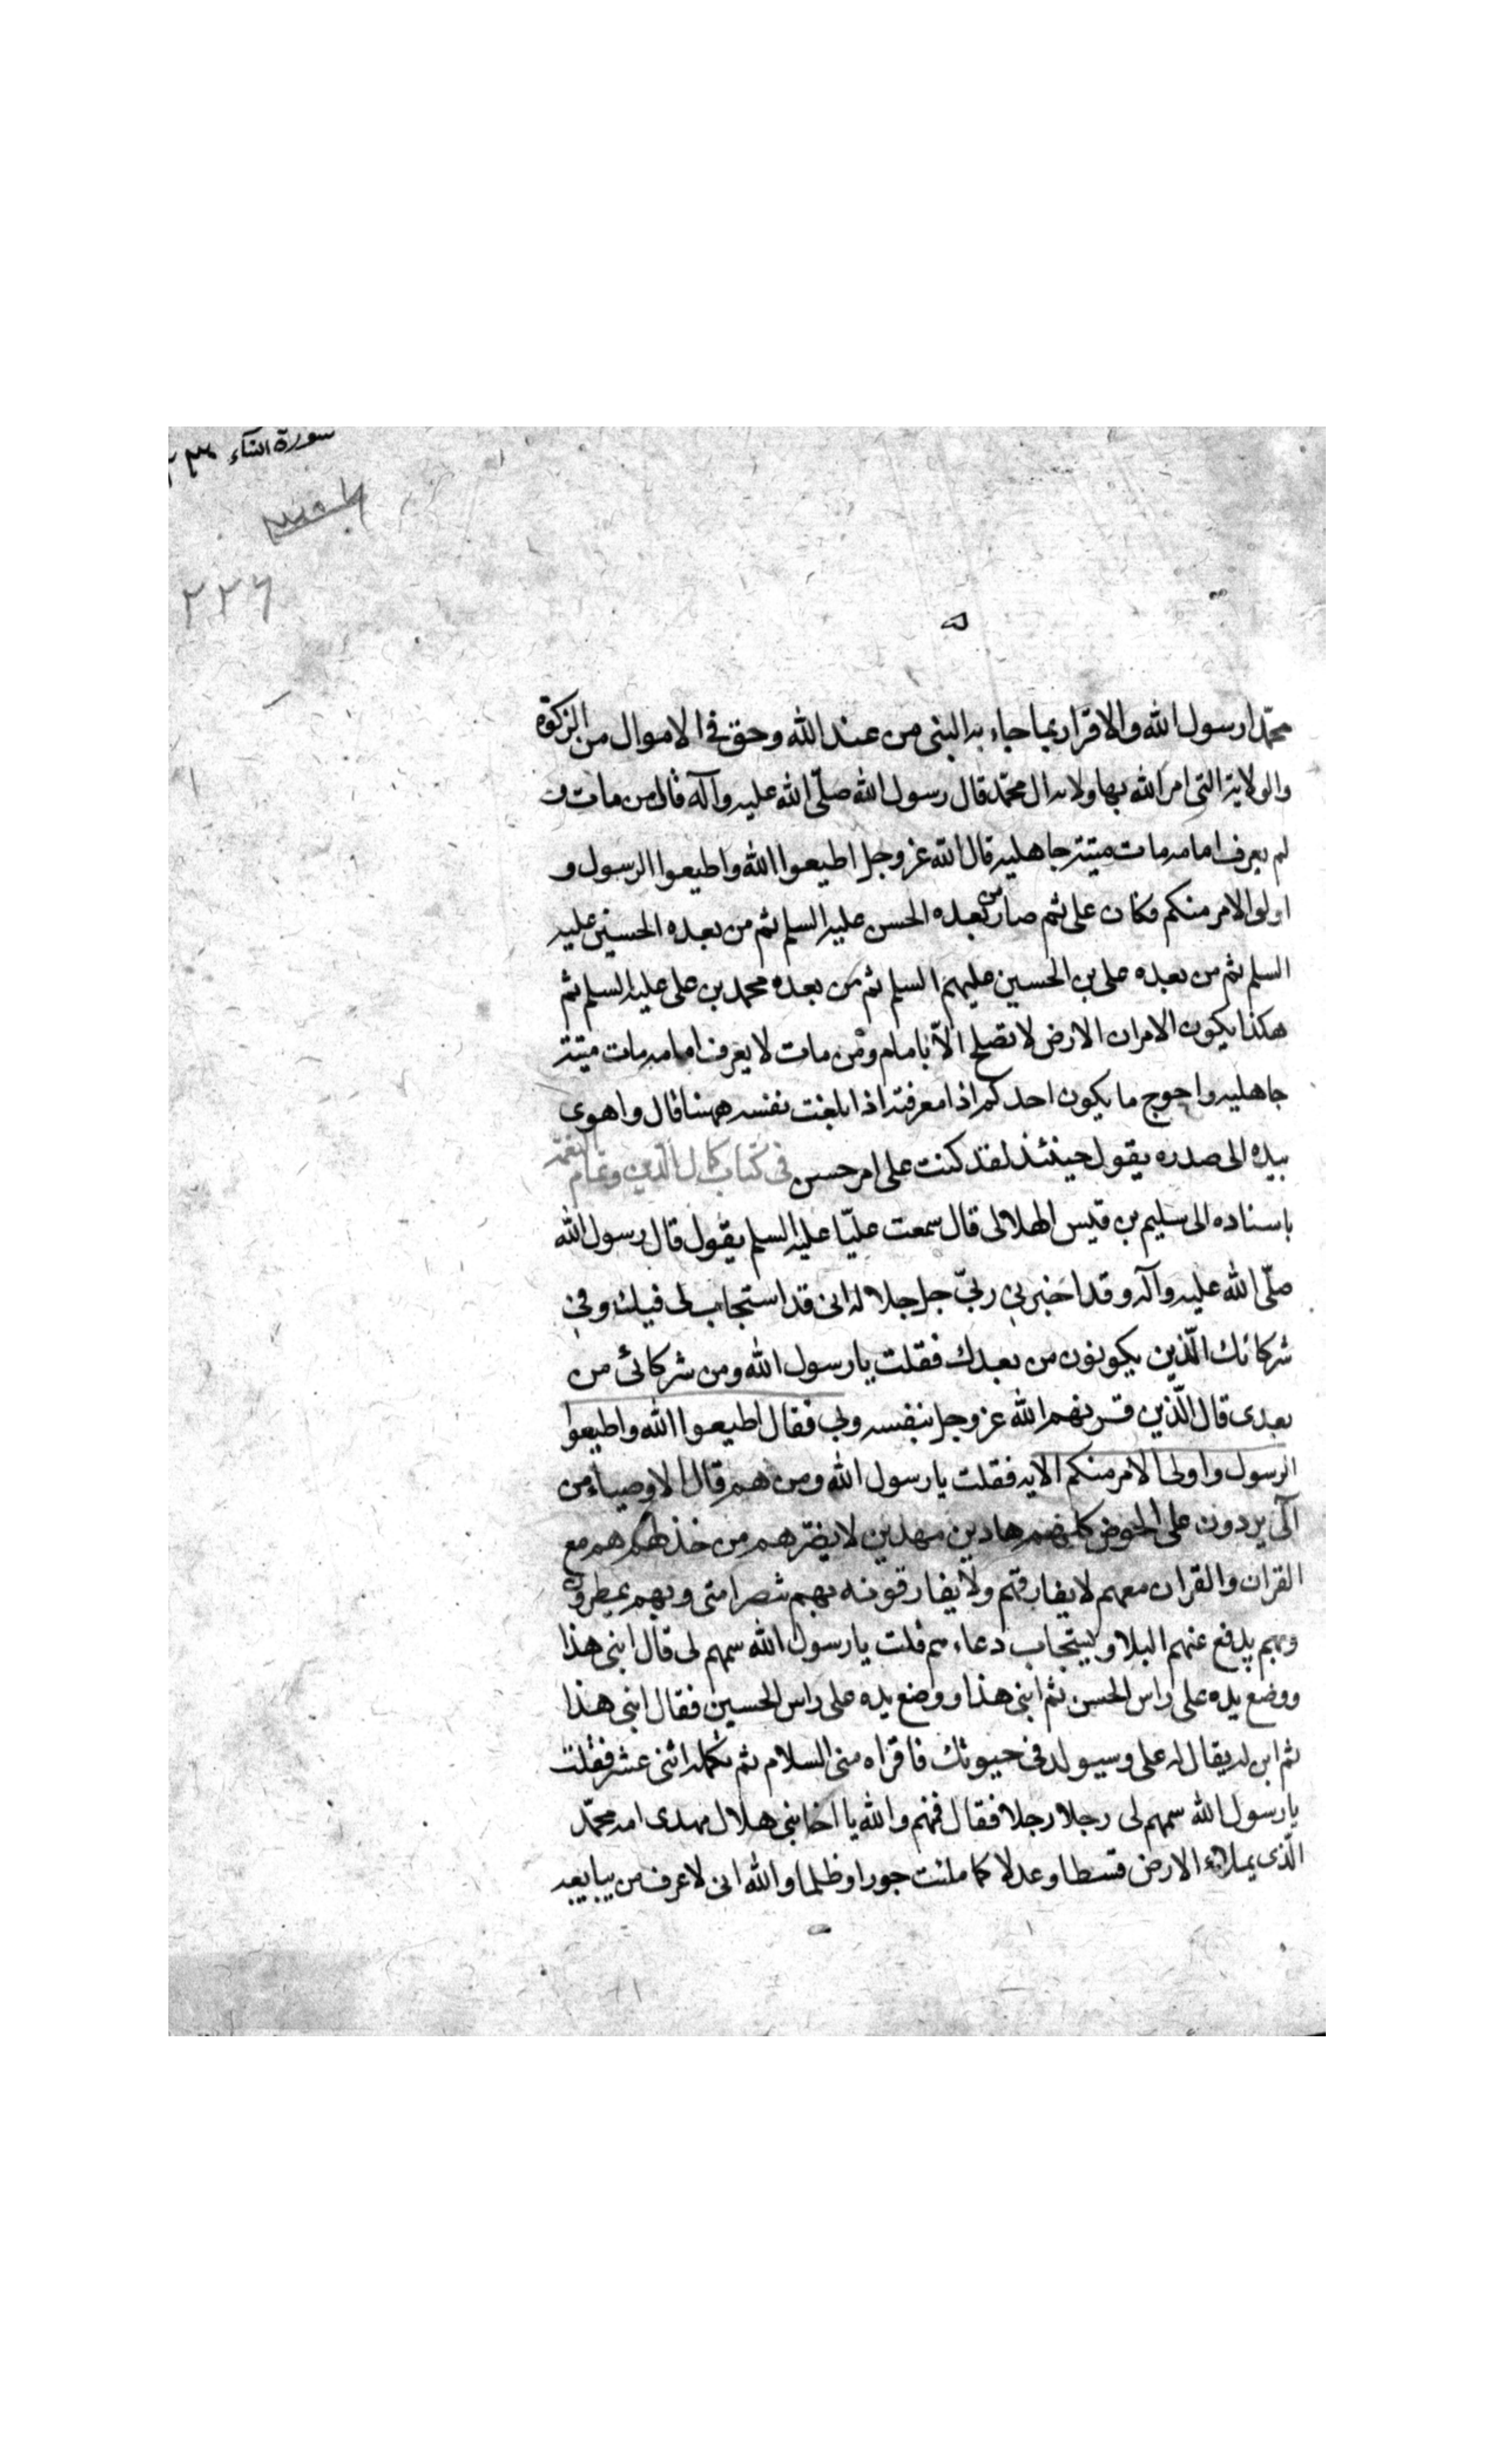 سورة النساء
٢٢٦
محمّدا رسول الله والاقرار بما جاء به النبى من عند الله وحق فى الاموال من الزكوة
والولاية التى امر الله بها ولايه ال محمّد قال رسول الله صلّى الله عليه وآله قال من مات و
لم يعرف امامه مات ميتة جاهليه قال الله عز وجل اطيعوا الله واطيعوا الرسول و
اولى الامر منكم فكان على ثم صار من بعده الحسن عليه السلم ثم من بعده الحسين عليه
السلم ثم من بعده على بن الحسين عليهم السلم ثم من بعده محمد بن على عليه السلم ثم
هكذا يكون الامر ان الارض لا تصلح الّا بامام ومن مات لا يعرف امامه مات ميتة
جاهليه واحوج ما يكون احدكم اذا معرفته اذا بلغت نفسه ههنا قال واهوى
بيده الى صدره يقول حينئذ لقد كنت على امر حسن فى كتاب كمال الدّين وتمام النعمة
باسناده الى سليم بن قيس الهلالى قال سمعت عليّا عليه السلم يقول قال رسول الله
صلّى الله عليه وآله وقد اخبرنى ربّى جل جلاله انى قد استجاب لى فيك وفى
شركائك الّذين يكونون من بعدك فقلت يا رسول الله ومن شركائى من
بعدى قال الّذين قرنهم الله عز وجل بنفسه وبى فقال اطيعوا الله واطيعوا
الرسول واولى الامر منكم الايه فقلت يا رسول الله ومن هم قال الاوصياء من
آلى يردون على الحوض كلهم هادين مهدين لا يضرّهم من خذلهم هم مع
القران والقران معهم لا يفارقهم ولا يفارقونه بهم تنصر امتى وبهم يمطرون
وبهم يدفع عنهم البلا ويستجاب دعاءهم قلت يا رسول الله سمهم لى قال ابنى هذا
ووضع يده على راس الحسن ثم ابنى هذا ووضع يده على راس الحسين فقال ابنى هذا
ثم ابن له يقال له على وسيولد فى حيوتك فاقراه منى السلام ثم تكمله اثنى عشر فقلت
يا رسول الله سمهم لى رجلا رجلا فقال فهم والله يا اخا بنى هلال مهدى امه محمّد
الّذى يملاء الارض قسطا وعدلا كما ملئت جورا وظلما والله انى لاعرف من يبايعه